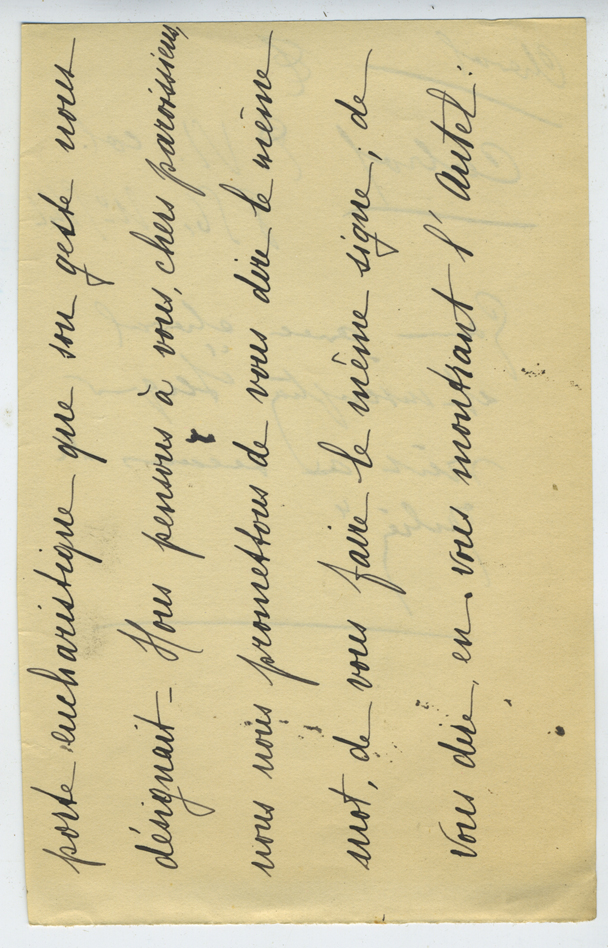 porte eucharistique que son geste nous
désignait – Nous pensons à vous, chers paroissiens,
nous nous promettons de vous dire le même
mot, de vous faire le même signe, de
vous dire, en vous montrant l'autel :